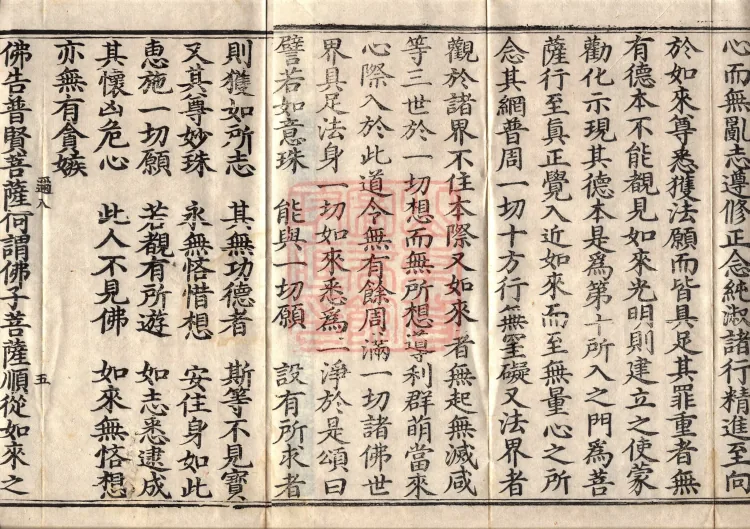 心而無亂志遵修正念純淑諸行精進至向
於如來尊悉獲法願而皆具足其罪重者無
有德本不能覩見如來光明則建立之使蒙
勸化示現其德本是為第十所入之門為菩
薩行至真正覺入近如來而至無量心之所
念其網普周一切十方行無罣礙又法界者
觀於諸界不住本際又如來者無起無滅咸
等三世於一切想而無所想導利群萌當來
心際入於此道令無有餘周滿一切諸佛世
界具足法身一切如來悉為一淨於是頌曰
譬若如意珠 能與一切願 設有所求者
則獲如所志 其無功德者 斯等不見寶
又其尊妙珠 永無悋惜想 安住身如此
惠施一切願 若覩有所遊 如志悉逮成
其懷凶危心 此人不見佛 如來無悋想
亦無有貪嫉
佛告普賢菩薩何謂佛子菩薩順從如來之
五